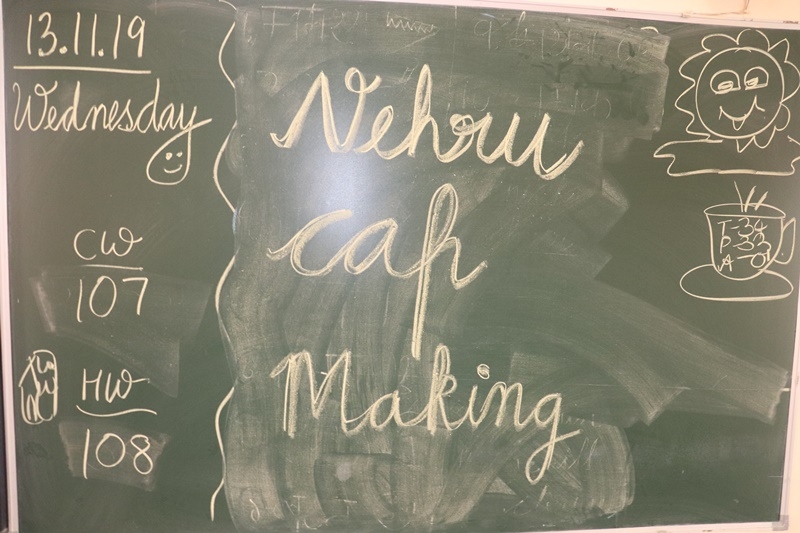 13.11.19
Wednesday
CW
107
HW
108
Nehru
Cap
Making
T-34
P-33
A-01